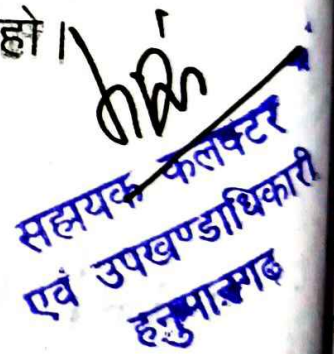 हो।
सहायक कलेक्टर
एवं उपखण्डाधिकारी
हनुमानगढ